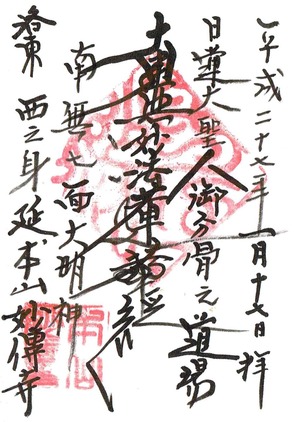 平成二十七年一月十七日拝
日蓮大聖人御分骨之道場
南無妙法蓮華経
南無七面大明神
洛東 西之身延 本山妙傳寺